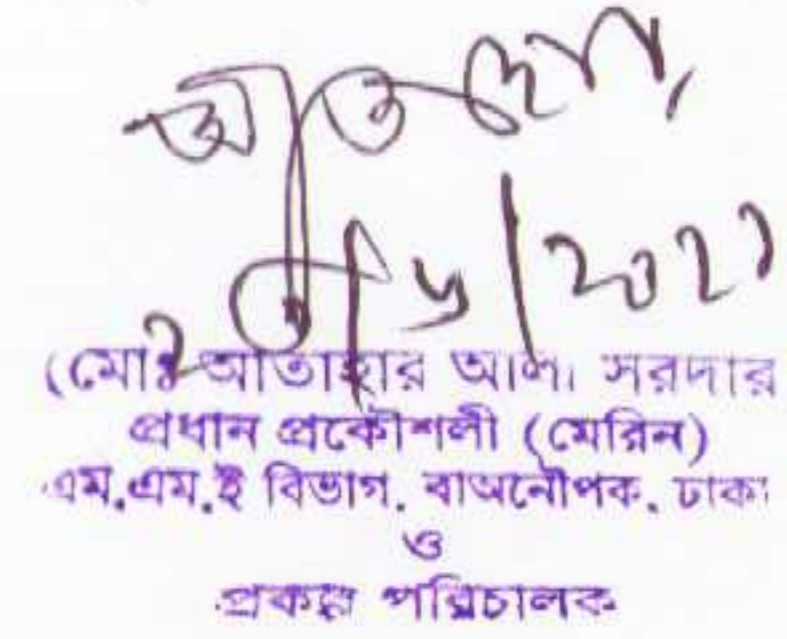 (মোঃ আতাহার আলী সরদার
প্রধান প্রকৌশলী (মেরিন)
এম.এম.ই বিভাগ. বাঅনৌপক. ঢাকা
ও
প্রকল্প পরিচালক